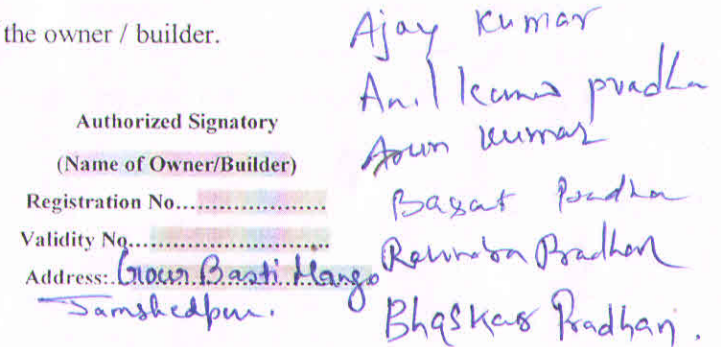 the owner / builder.
Authorized Signatory
(Name of Owner/Builder)
Registration No.....................
Validity No..............................
Address:. Gour Basti Mango
Jamshedpur.
Ajay Kumar
Anil Kumar Pradhan
Arun Kumar
Basat Pradhan
Ravindra Pradhan
Bhaskar Pradhan.